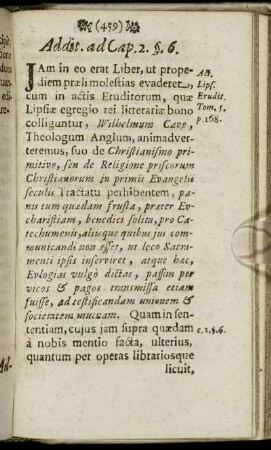 (459)
Addit. ad Cap. 2. §. 6.
JAm in eo erat Liber, ut prope-
diem præli molestias evaderet,
cum in actis Eruditorum, quæ
Lipsiæ egregio rei litterariæ bono
colliguntur, Wilhelmum Cave,
Theologum Anglum, animadver-
teremus, suo de Christianismo pri-
mitivo, seu de Religione priscorum
Christianorum in primis Evangelii
seculis Tractatu perhibentem, pa-
nis tum quædam frusta, præter Eu-
charistiam, benedici solita, pro Ca-
techumenis, aliisque quibus jus com-
municandi non esset, ut loco Sacra-
menti ipsis inserviret, atque hæc,
Eulogias vulgò dictas, passim per
vicos & pagos transmissa etiam
fuisse, ad testificandam unionem &
societatem mutuam. Quam in sen-
tentiam, cujus jam supra quædam
à nobis mentio facta, ulterius,
quantum per operas librariosque
licuit,
Act.
Lips.
Erudit.
Tom. 5.
p. 168.
c. 2. §. 6.